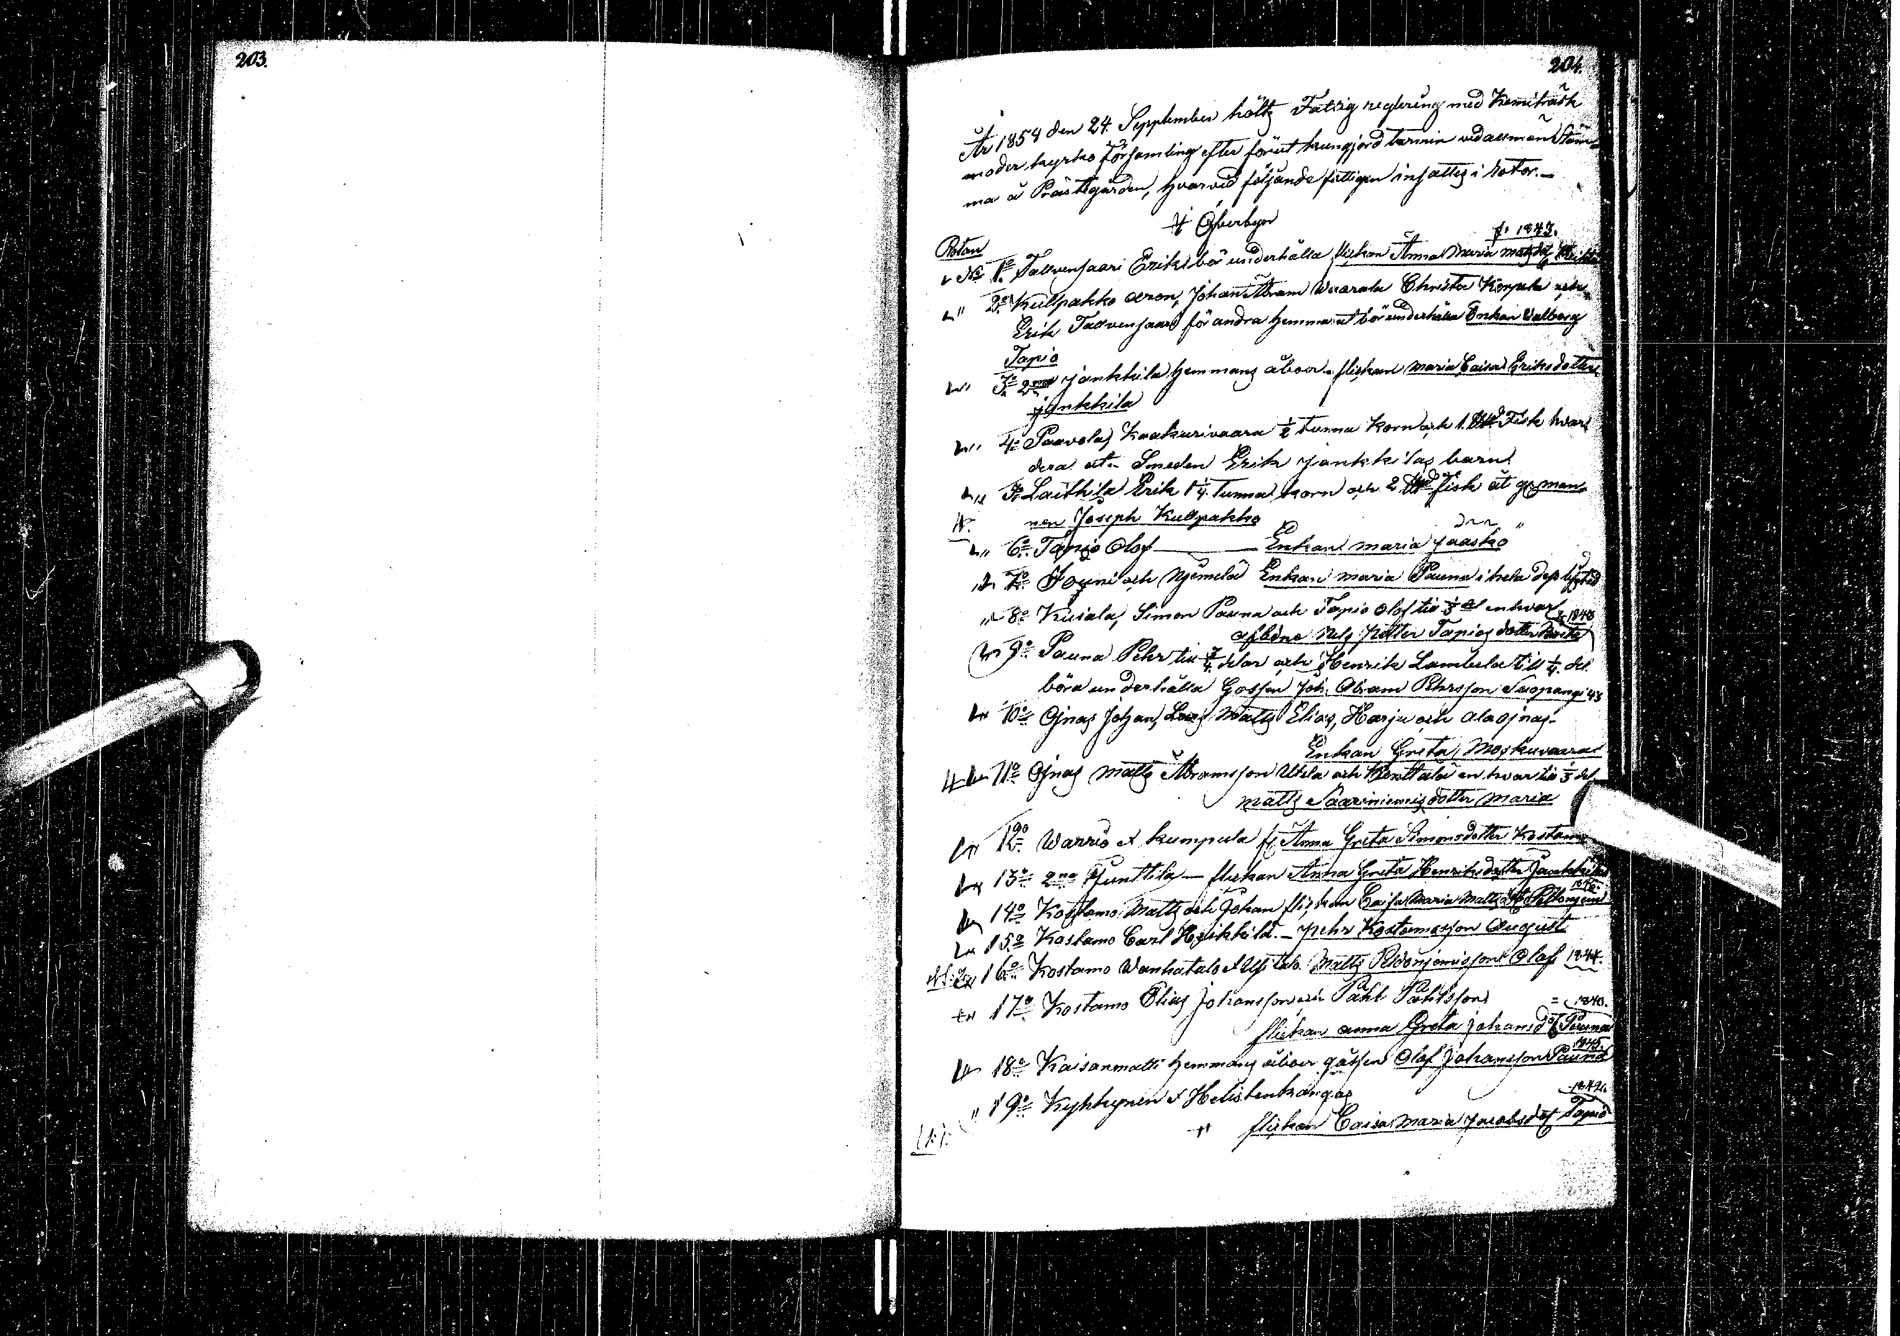 203.
204.
År 1854 den 24. September höltz Fattig reglering med Kemiträsk
moder kyrko församling efter förut kungjord termin vid allmän Stäm-
ma å Prästgården, hvarvid följande fattigen insattes i Rotar.—
i Öfverbyn
f. 1843.
Rotan
No 1o Tallvensaari Erik bör underhålla flickan Anna Maria
" 2o Kullpakko Aron, Johan Abram Waarala Christer Korpela och
Erik Tallvensaari för andra hemmanet bör underhålla Enkan Walborg
Tapio
" 3o 2ne Jankkila hemmans åboer flickan Maria Caisa Eriksdotter
Jankkila
" 4o Paavola, Kaakurivaara ½ tunna Korn och 1. Fisk hvar-
dera åt Smeden Erik Jankkilas barn
" 5o Laitkila Erik 1¼ tunna korn och 2 fisk åt gl. man-
nen Joseph Kullpakko
" 6o Tapio Olof — Enkan Maria Jaasko
7o Jouni och Njemelä Enkan Maria Pauna i hela dess lifstid
" 8o Kusala, Simon Pauna och Tapio Olof till ⅓ del en hvar 1848
aflidne Nils Petter Tapios dotter
9o Pauna Pehr till ¾ delar och Henrik Lambela till ¼ del
böra underhålla Gossen Joh. Abram Pehrsson Suopangi 43
10o Ojnas Johan, Matts Elias, Harju och Alaojnas
Enkan Greta Moskuvaara
11o Ojnas Matts Abramsson Utela och Kenttala en hvar till ⅓ del
Matts Saariniemis dotter Maria
12o Warrio & Kumpula fl. Anna Greta Simonsdotter Kostamo
13o 2ne Junttila — flickan Anna Greta Henriksdotter Jankkila
14o Kostamo Matts och Johan flickan Caisa Maria Matts
15o Kostamo Carl Heikkilä. — Pehr Kostamos son August
16o Kostamo Wanhatalo & Matts Olof 1844.
17o Kostamo Elias Johansson och Påhl Påhlsson
1840.
flickan Anna Greta Johansdr Pauna
1845.
18o Kaisanmatti hemmans åboer gossen Olof Johansson Pauna
" 19o Kyhkynen & Helistenkangas
1842.
flickan Caisa Maria Jacobsdr Tapio